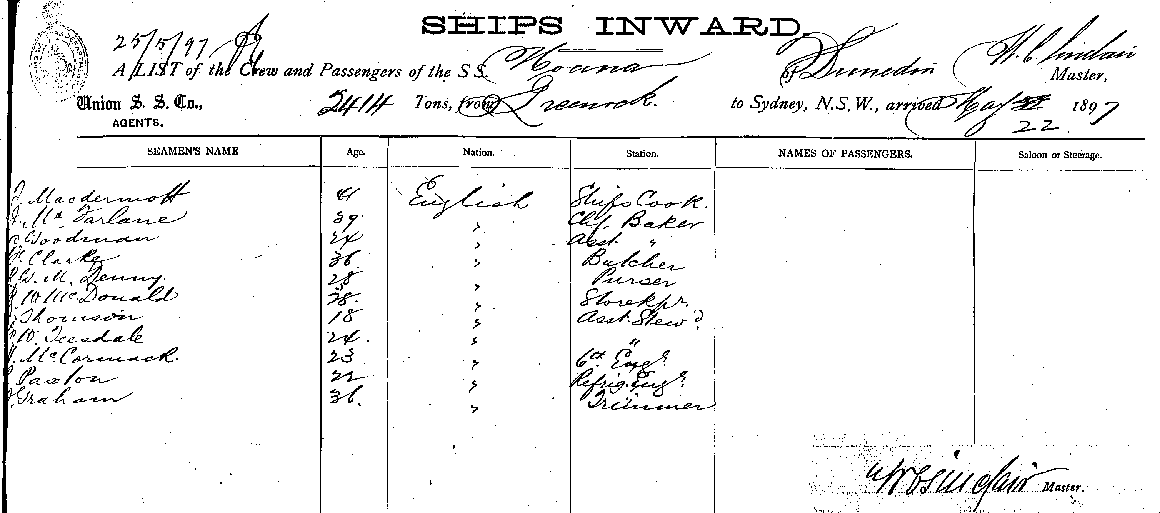 SHIPS INWARD,
25/5/97
A LIST of the Crew and Passengers of the S.S. Moana of Dunedin H. C. Sinclair Master,
Union S. S. Co., 2414 Tons, from Greenock. to Sydney, N.S.W., arrived May 22 1897
AGENTS.
SEAMEN'S NAME Age. Nation. Station. NAMES OF PASSENGERS. Saloon or Steerage.
Macdermott 41 English Ships Cook.
McFarlane 39 " Chf. Baker
Goodman 24 " Asst. "
Clarke 36 " Butcher
G. M. Denny. 28 " Purser
W McDonald 38. " Storekpr.
Thomson 18 " Asst. Stewd.
W. Teesdale 24. " "
McCormack. 23 " 6th Engr.
Paxton 22 " Refrig. Engr.
Graham 36. " Trimmer
Sinclair Master.